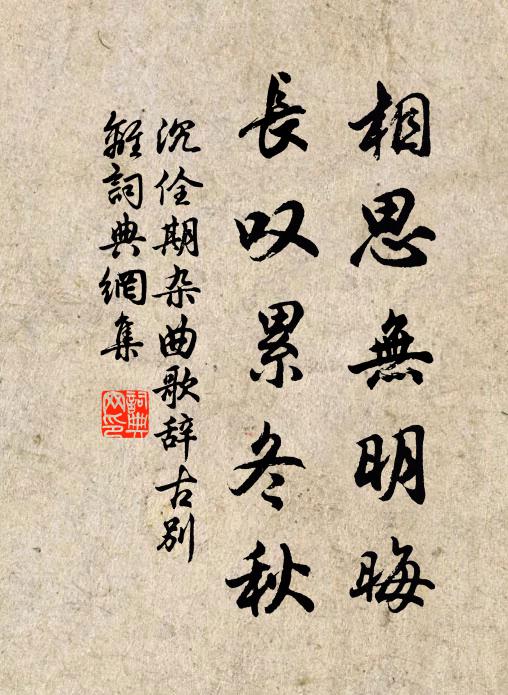 相思無明晦
長叹累冬秋
沉佺期杂曲歌辞古别
離詞典網集
詞典
网印